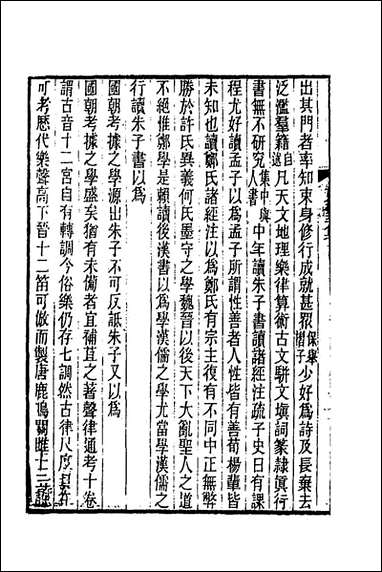 出其門者率知束身修行成就甚眾保舉摺子少好為詩及長棄去
泛濫羣籍自述凡天文地理樂律算術古文駢文塡詞篆隷眞行
書無不研究集中與人書中年讀朱子書讀諸經注疏子史日有課
程尤好讀孟子以為孟子所謂性善者人性皆有善荀楊輩皆
未知也讀鄭氏諸經注以為鄭氏有宗主復有不同中正無弊
勝於許氏異義何氏墨守之學魏晉以後天下大亂聖人之道
不絕惟鄭學是賴讀後漢書以為學漢儒之學尤當學漢儒之
行讀朱子書以為
國朝考據之學源出朱子不可反詆朱子又以為
國朝考據之學盛矣猶有未備者宜補苴之著聲律通考十卷
謂古音十二宮自有轉調今俗樂仍存七調然古律尺度具在
可考歷代樂聲高下晉十二笛可倣而製唐鹿鳴關雎十二詩